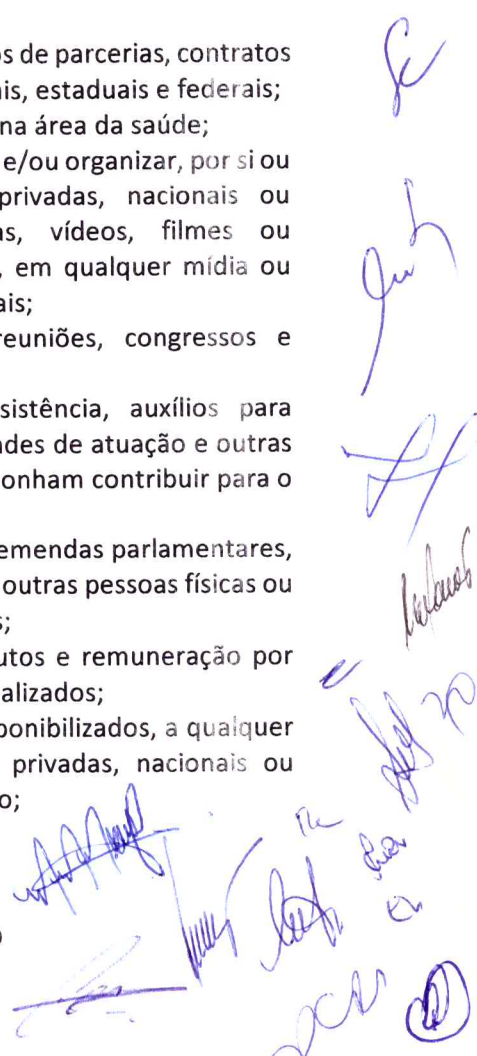 os de parcerias, contratos
ais, estaduais e federais;
na área da saúde;
e/ou organizar, por si ou
privadas, nacionais ou
as, vídeos, filmes ou
, em qualquer mídia ou
ais;
reuniões, congressos e
sistência, auxílios para
ades de atuação e outras
onham contribuir para o
emendas parlamentares,
outras pessoas físicas ou
s;
utos e remuneração por
alizados;
ponibilizados, a qualquer
privadas, nacionais ou
o;